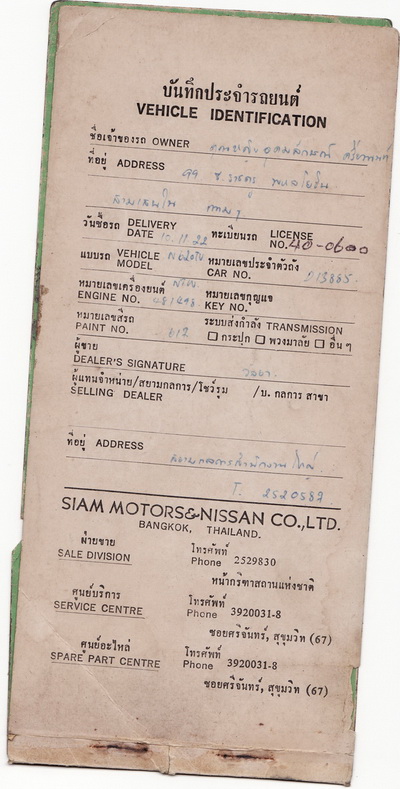 บันทึกประจำรถยนต์
VEHICLE IDENTIFICATION
ชื่อเจ้าของรถ OWNER
ที่อยู่ ADDRESS 99
วันซื้อรถ DELIVERY DATE 10.11.22 ทะเบียนรถ LICENSE NO. 4D-0600
แบบรถ VEHICLE MODEL หมายเลขประจำตัวถัง CAR NO. 013865
หมายเลขเครื่องยนต์ ENGINE NO. หมายเลขกุญแจ KEY NO.
หมายเลขสีรถ PAINT NO. 612 ระบบส่งกำลัง TRANSMISSION
☐ กระปุก ☐ พวงมาลัย ☐ อื่น ๆ
ผู้ขาย
DEALER'S SIGNATURE
ผู้แทนจำหน่าย/สยามกลการ/โชว์รูม /บ. กลการ สาขา
SELLING DEALER
ที่อยู่ ADDRESS
สยามกลการสำนักงานใหญ่
T. 2520587
SIAM MOTORS&NISSAN CO.,LTD.
BANGKOK, THAILAND.
ฝ่ายขาย โทรศัพท์
SALE DIVISION Phone 2529830
หน้ากรีฑาสถานแห่งชาติ
ศูนย์บริการ โทรศัพท์
SERVICE CENTRE Phone 3920031-8
ซอยศรีจันทร์, สุขุมวิท (67)
ศูนย์อะไหล่ โทรศัพท์
SPARE PART CENTRE Phone 3920031-8
ซอยศรีจันทร์, สุขุมวิท (67)